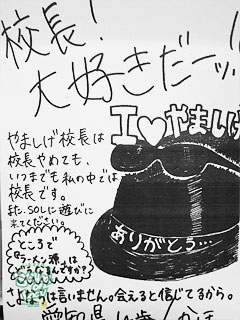 校長!
大好きだーッ!!
I♡やましげ
やましげ校長は
校長やめても、
いつまでも私の中では
校長です。
また、SOLに遊びに
来てください。
ありがとう…
ところで
「ラーメン源」は
どうなるんですか?
さよならは言いません。会えると信じてるから。
愛知県 14歳